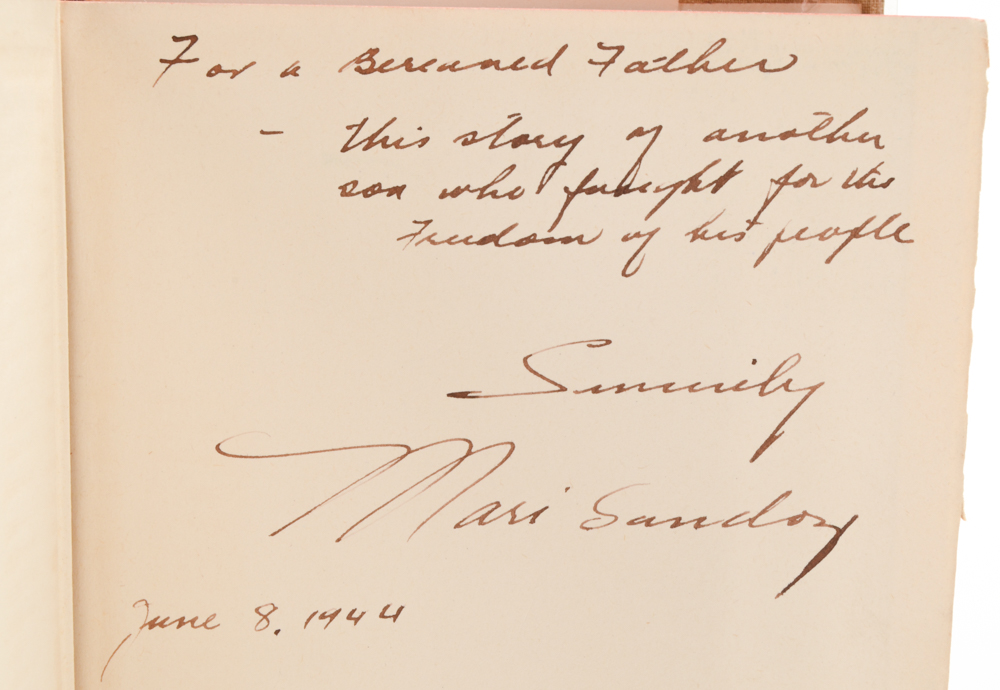 For a Bereaved Father
- this story of another
son who fought for the
Freedom of his people
Sincerely
Mari Sandoz
June 8, 1944